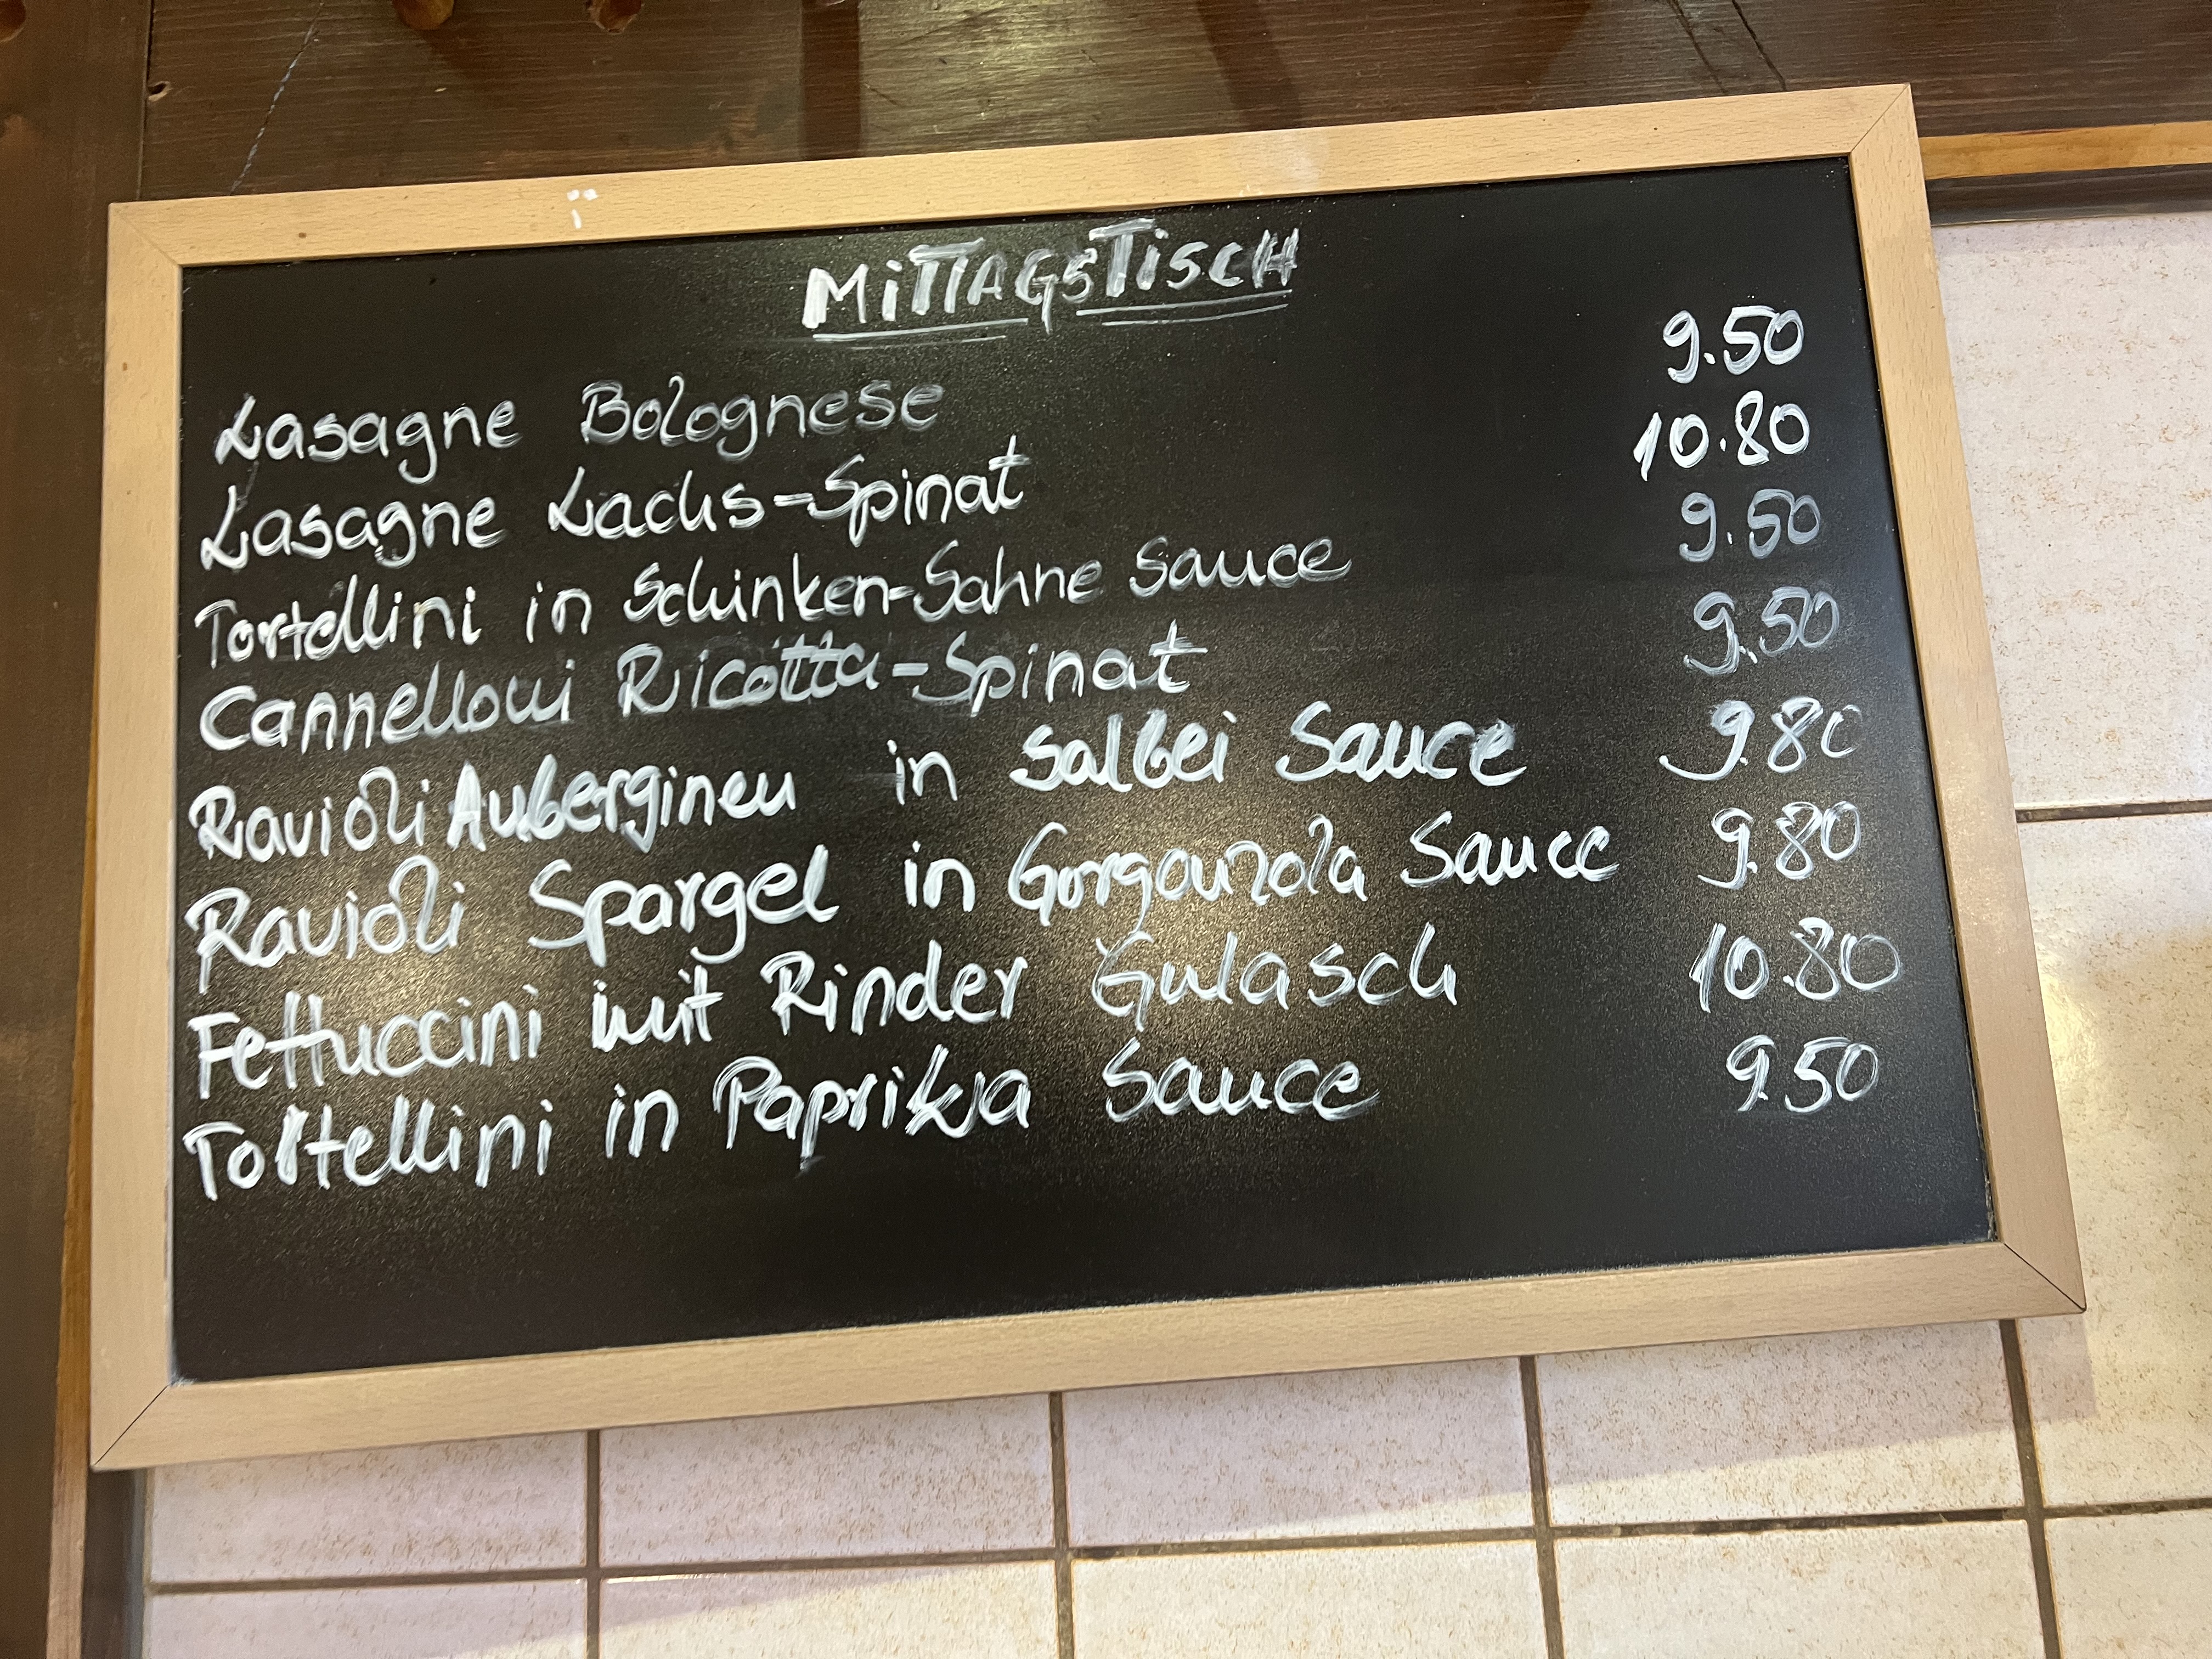 MITTAGSTISCH
Lasagne Bolognese 9.50
Lasagne Lachs-Spinat 10.80
Tortellini in Schinken-Sahne Sauce 9.50
Cannelloni Ricotta-Spinat 9.50
Ravioli Auberginen in Salbei Sauce 9.80
Ravioli Spargel in Gorgonzola Sauce 9.80
Fettuccini mit Rinder Gulasch 10.80
Tortellini in Paprika Sauce 9.50